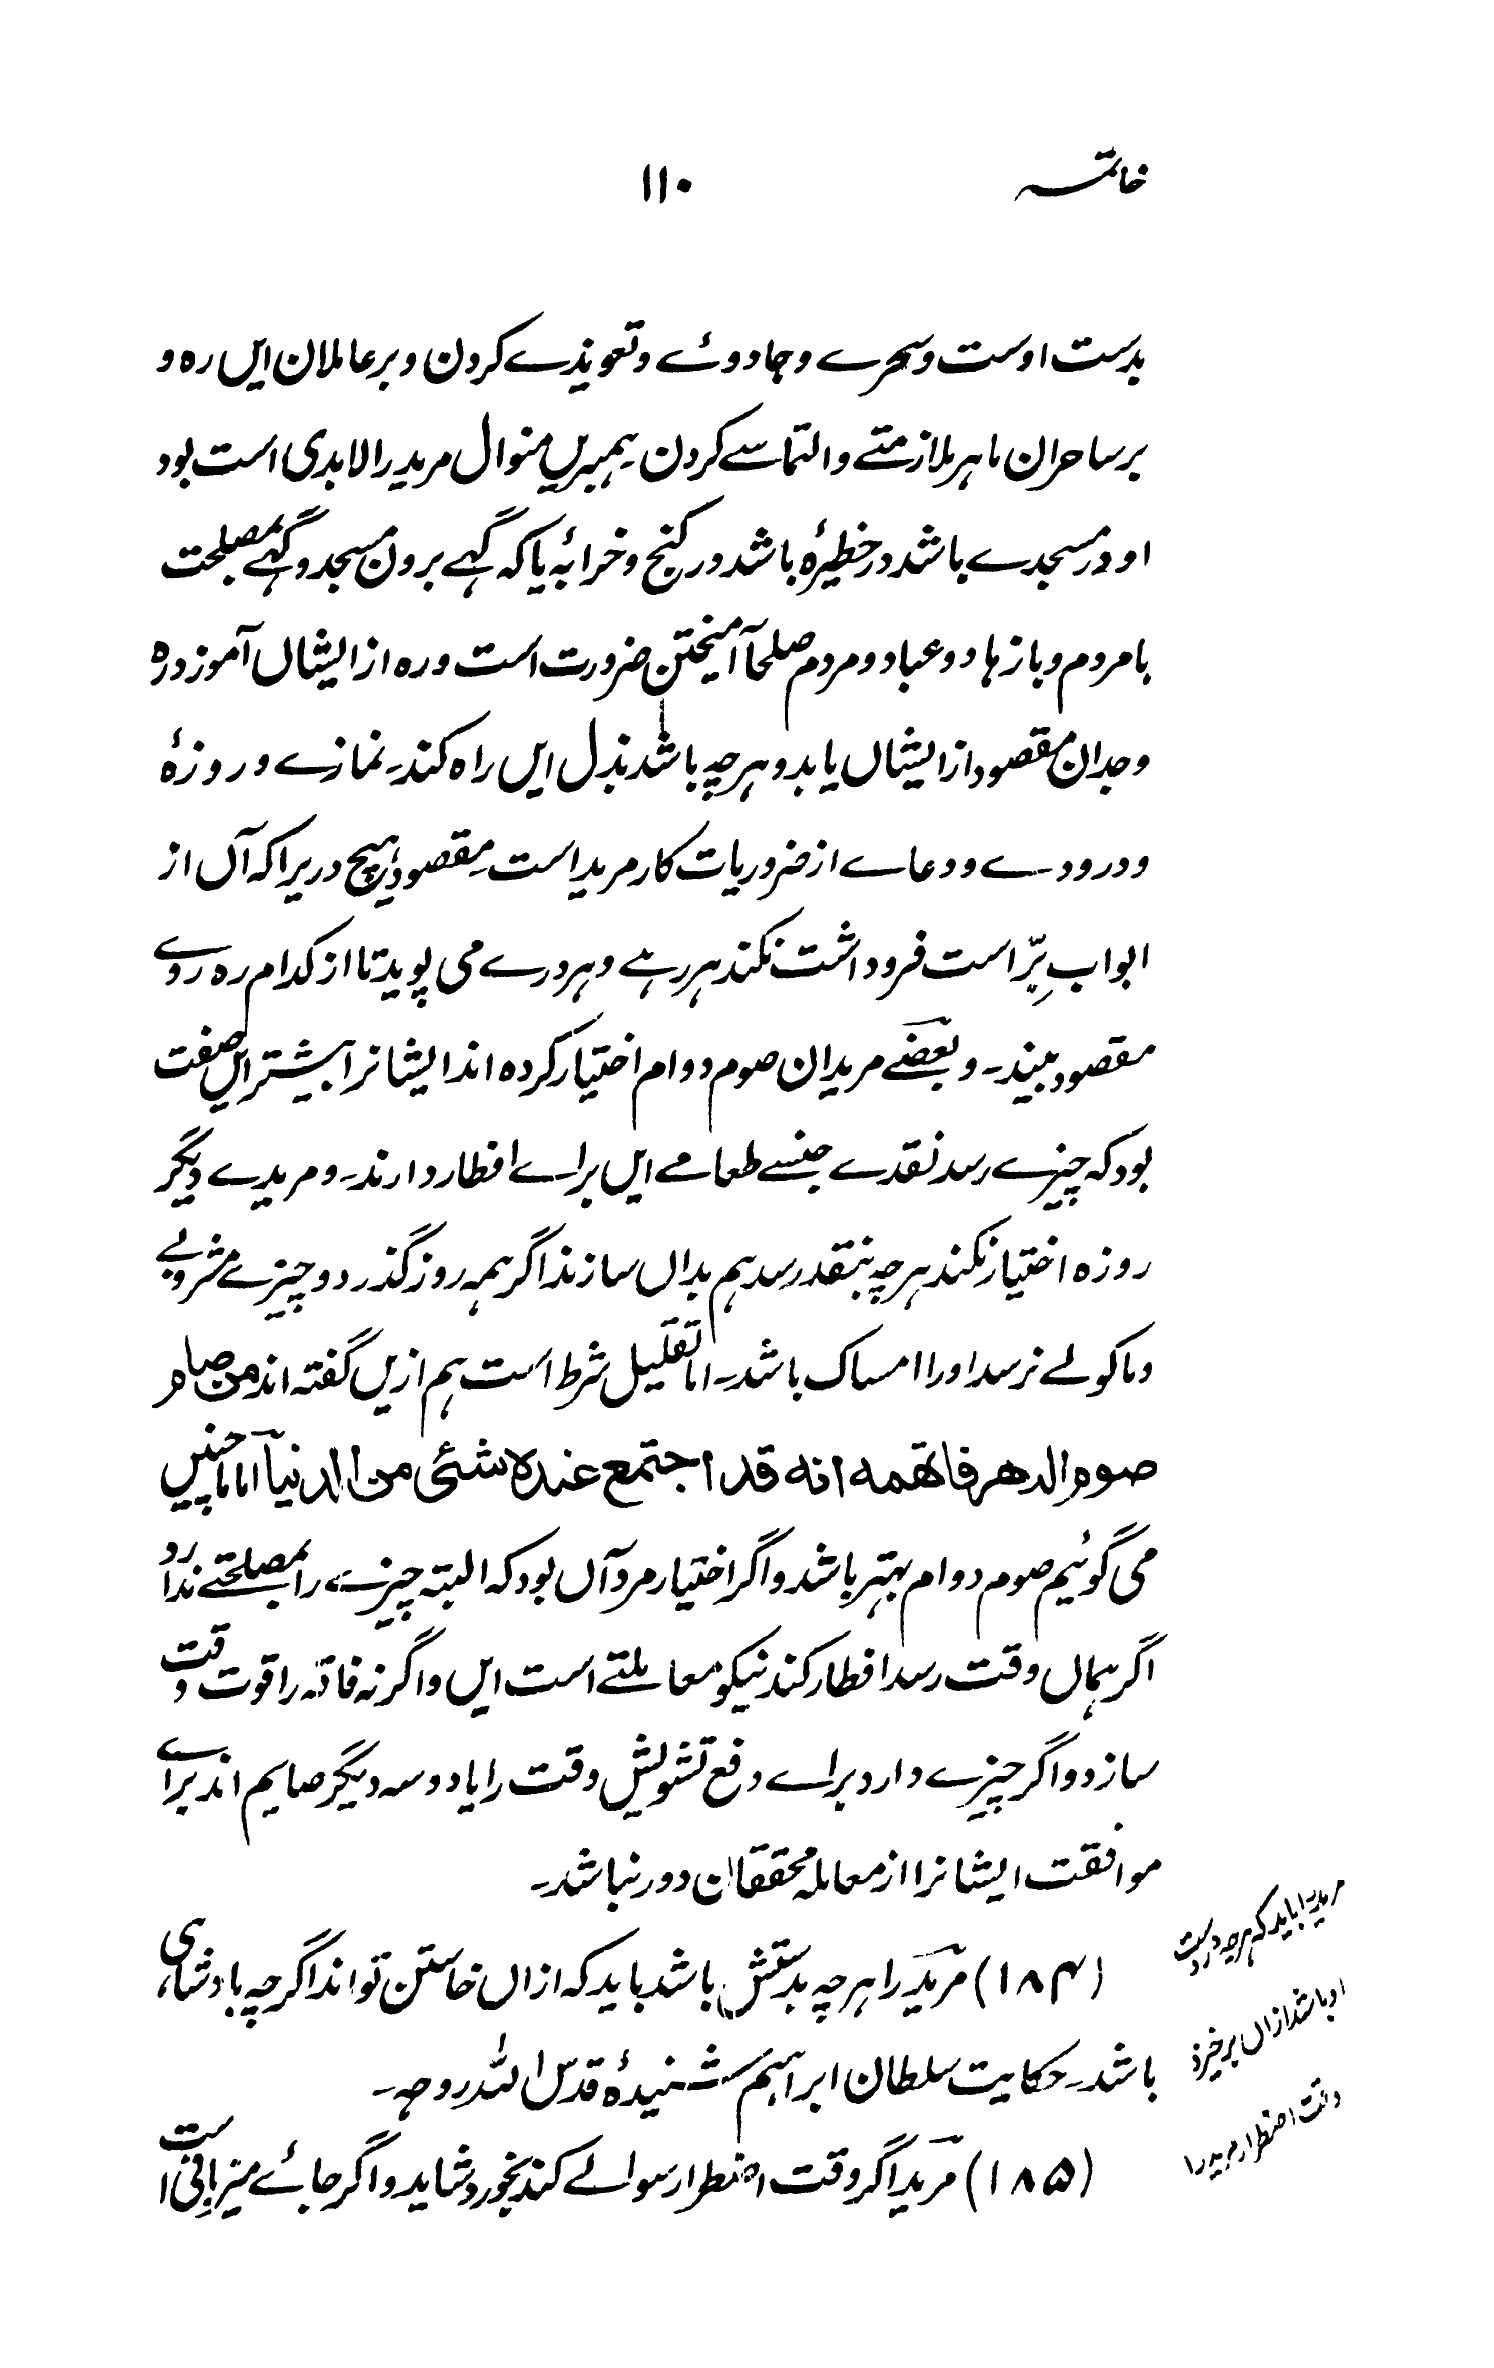 خاتمہ ۱۱۰
بدست اوست و سحرے و جادوئے و تعویذے کردن و بر عاملان ایں رہ و
بر ساحران ماہر ملازمتے و التماسے کردن۔ ہمبریں منوال مرید را لابدی است بود
او در مسجدے باشد در خطیرۂ باشد در کنج و خرابۂ یا کہ گہے برون مسجد و گہے بمصلحت
با مردم و با زہاد و عباد و مردم صلحا آمیختن ضرورت است و رہ از ایشاں آموزد رہ
وجدان مقصود از ایشاں یابد و ہرچہ باشد بذل ایں راہ کند۔ نمازے و روزۂ
و درودے و دعاے از ضروریات کار مرید است۔ مقصود ہیچ دریرا کہ آں از
ابواب بِرّ است فروداشت نکند ہر رہے و ہر درے می پوید تا از کدام رہ روے
مقصود بیند۔ و بعضے مریدان صوم دوام اختیار کردہ اند ایشانرا بیشتر ایں صفت
بود کہ چیزے رسد نقدے جنسے طعامے ایں براے افطار دارند۔ و مریدے دیگر
روزہ اختیار نکند ہرچہ بنقد رسد ہم بداں سازند اگر ہمہ روز گذرد و چیزے مشروبے
و ماکولے نرسد اورا امساک باشد۔ اما تقلیل شرط است ہم ازیں گفتہ اند من صام
صوم الدھر فاتھمہ انہ قد اجتمع عندہ شئی من الدنیا اما ما چنیں
می گوئیم صوم دوام بہتر باشد و اگر اختیار مرد آں بود کہ البتہ چیزے را بمصلحتے ندارد
اگر ہماں وقت رسد افطار کند نیکو معاملتے است ایں و اگر نہ فاقہ را قوت وقت
سازد و اگر چیزے دارد براے دفع تشویش وقت را یا دو سہ دیگر صایم اند براے
موافقت ایشانرا از معاملہ محققان دور نباشد۔
(۱۸۴) مرید را ہرچہ بدستش باشد باید کہ ازاں خاستن تواند اگرچہ بادشاہی
باشد۔ حکایت سلطان ابراہیم شنیدۂ قدس اللہ روحہ۔
(۱۸۵) مرید اگر وقت اضطرار سوالے کند بخورد شاید و اگر جائے میزبانی است
مرید را باید کہ ہرچہ در دست
او باشد ازاں برخیزد
وقت اضطرار مرید را